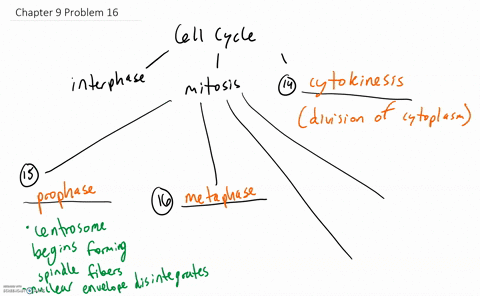 Chapter 9 Problem 16
Cell Cycle
interphase
mitosis
14 cytokinesis
(division of cytoplasm)
15
prophase
16 metaphase
• centrosome
begins forming
spindle fibers
nuclear envelope disintegrates